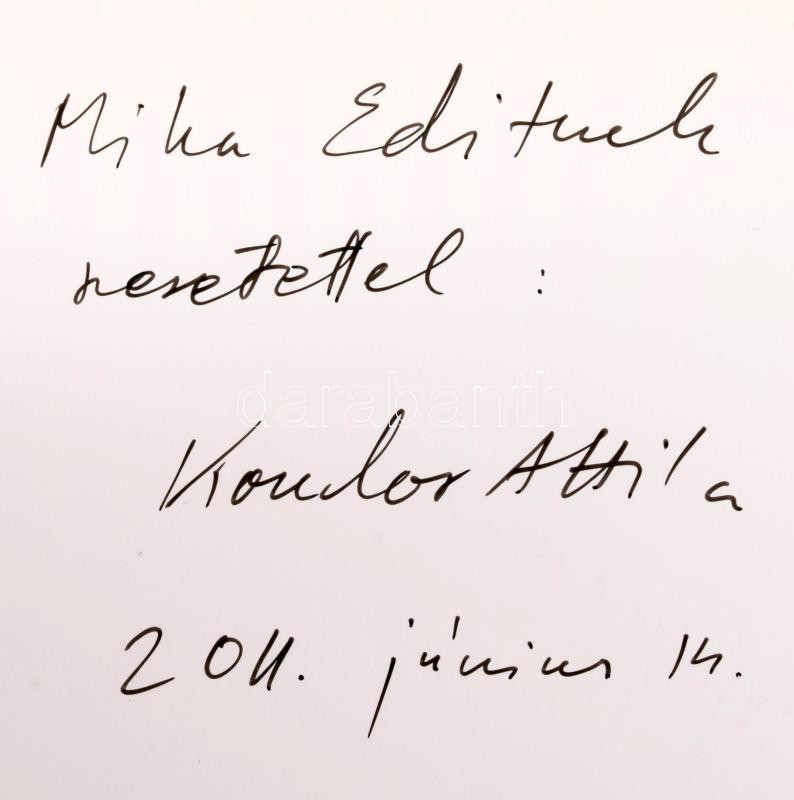 Mika Editnek
szeretettel :
darabanth
Kondor Attila
2011. június 14.